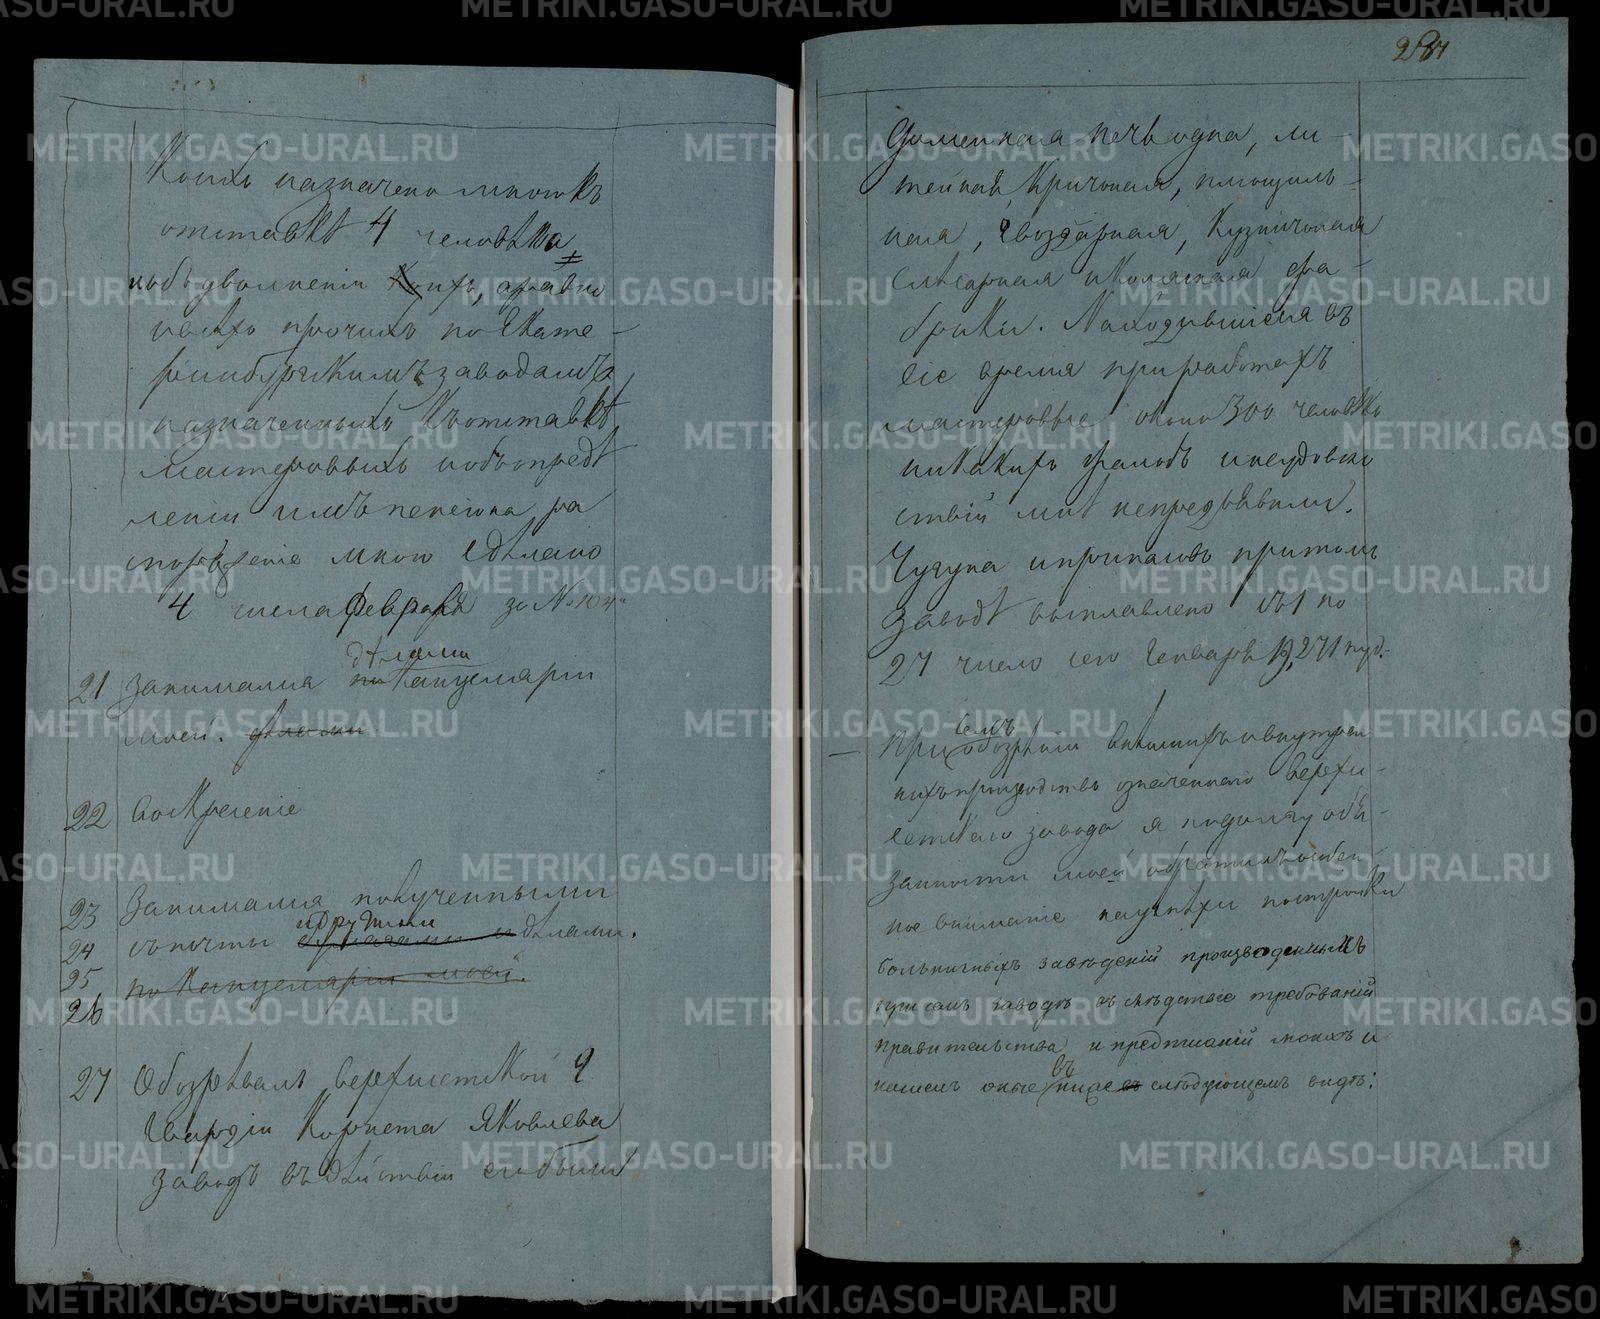 Коихъ назначено мною къ
отставкѣ 4 человѣка
иобъ уволненіи ихъ, равно
ивсѣхъ прочихъ по Екате-
ринбургскимъ заводамъ
назначенныхъ къ отставкѣ
мастеровыхъ иобъ опредѣ
леніи имъ пенсіона ра
споряженіе мною сдѣлано
4 числа Февраля за №
21 Занимался дѣлами по Канцеляріи
моей. дѣлами
22 Воскресеніе
23 Занимался полученными
24 съ почты и другими дѣлами.
25 по Канцеляріи моей.
26
27 Обозрѣвалъ верхисетской г.
Гвардіи Корнета Яковлева
заводъ въ дѣйствіи его были
Доменная печь одна, ли-
тейная, Кричная, плющиль-
ная, Гвоздарная, Кузнишная
слѣсарная и фа-
брики. Находившіеся въ
сіе время при работахъ
мастеровые около 300 человѣкъ
никакихъ жалобъ и неудоволь
ствій мнѣ непредъявили.
Чугуна и припасовъ притомъ
заводѣ выплавлено съ 1 по
27 число сего Генваря 19,271 пуд.
При семъ обозрѣніи внѣшнихъ и внутрен
нихъ производствъ означеннаго верхи-
сетскаго завода я по долгу обя-
занности моей обратилъ особен-
ное вниманіе на успѣхи постройки
больничныхъ заведеній производеннымъ
при семъ заводѣ въ слѣдствіе требованій
Правительства и предписаній моихъ и
нашелъ оные въ ниже въ слѣдующемъ видѣ:
METRIKI.GASO-URAL.RU